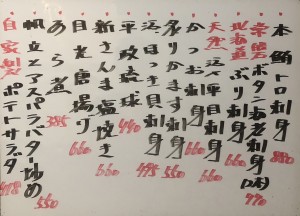 本鮪トロ刺身 880
ボタン海老刺身 770
北海道ぶり刺身
天然 刺身 660
かつお刺身
炙りかます刺身 550
活ほっき貝刺身 495
440
新さんま塩焼き 660
目光唐揚り 660
あら煮 385
帆立とアスパラバター炒め 550
自家製ポテトサラダ